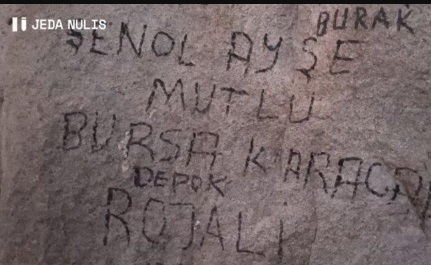 JEDA NULIS
BURAK
ŞENOL AYŞE
MUTLU
BURSA KARACA
DEPOK
ROJALİ